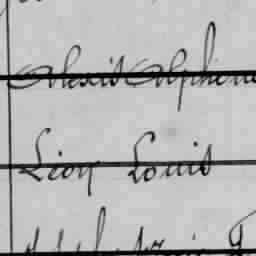 Alexis Alphons
Léon Louis